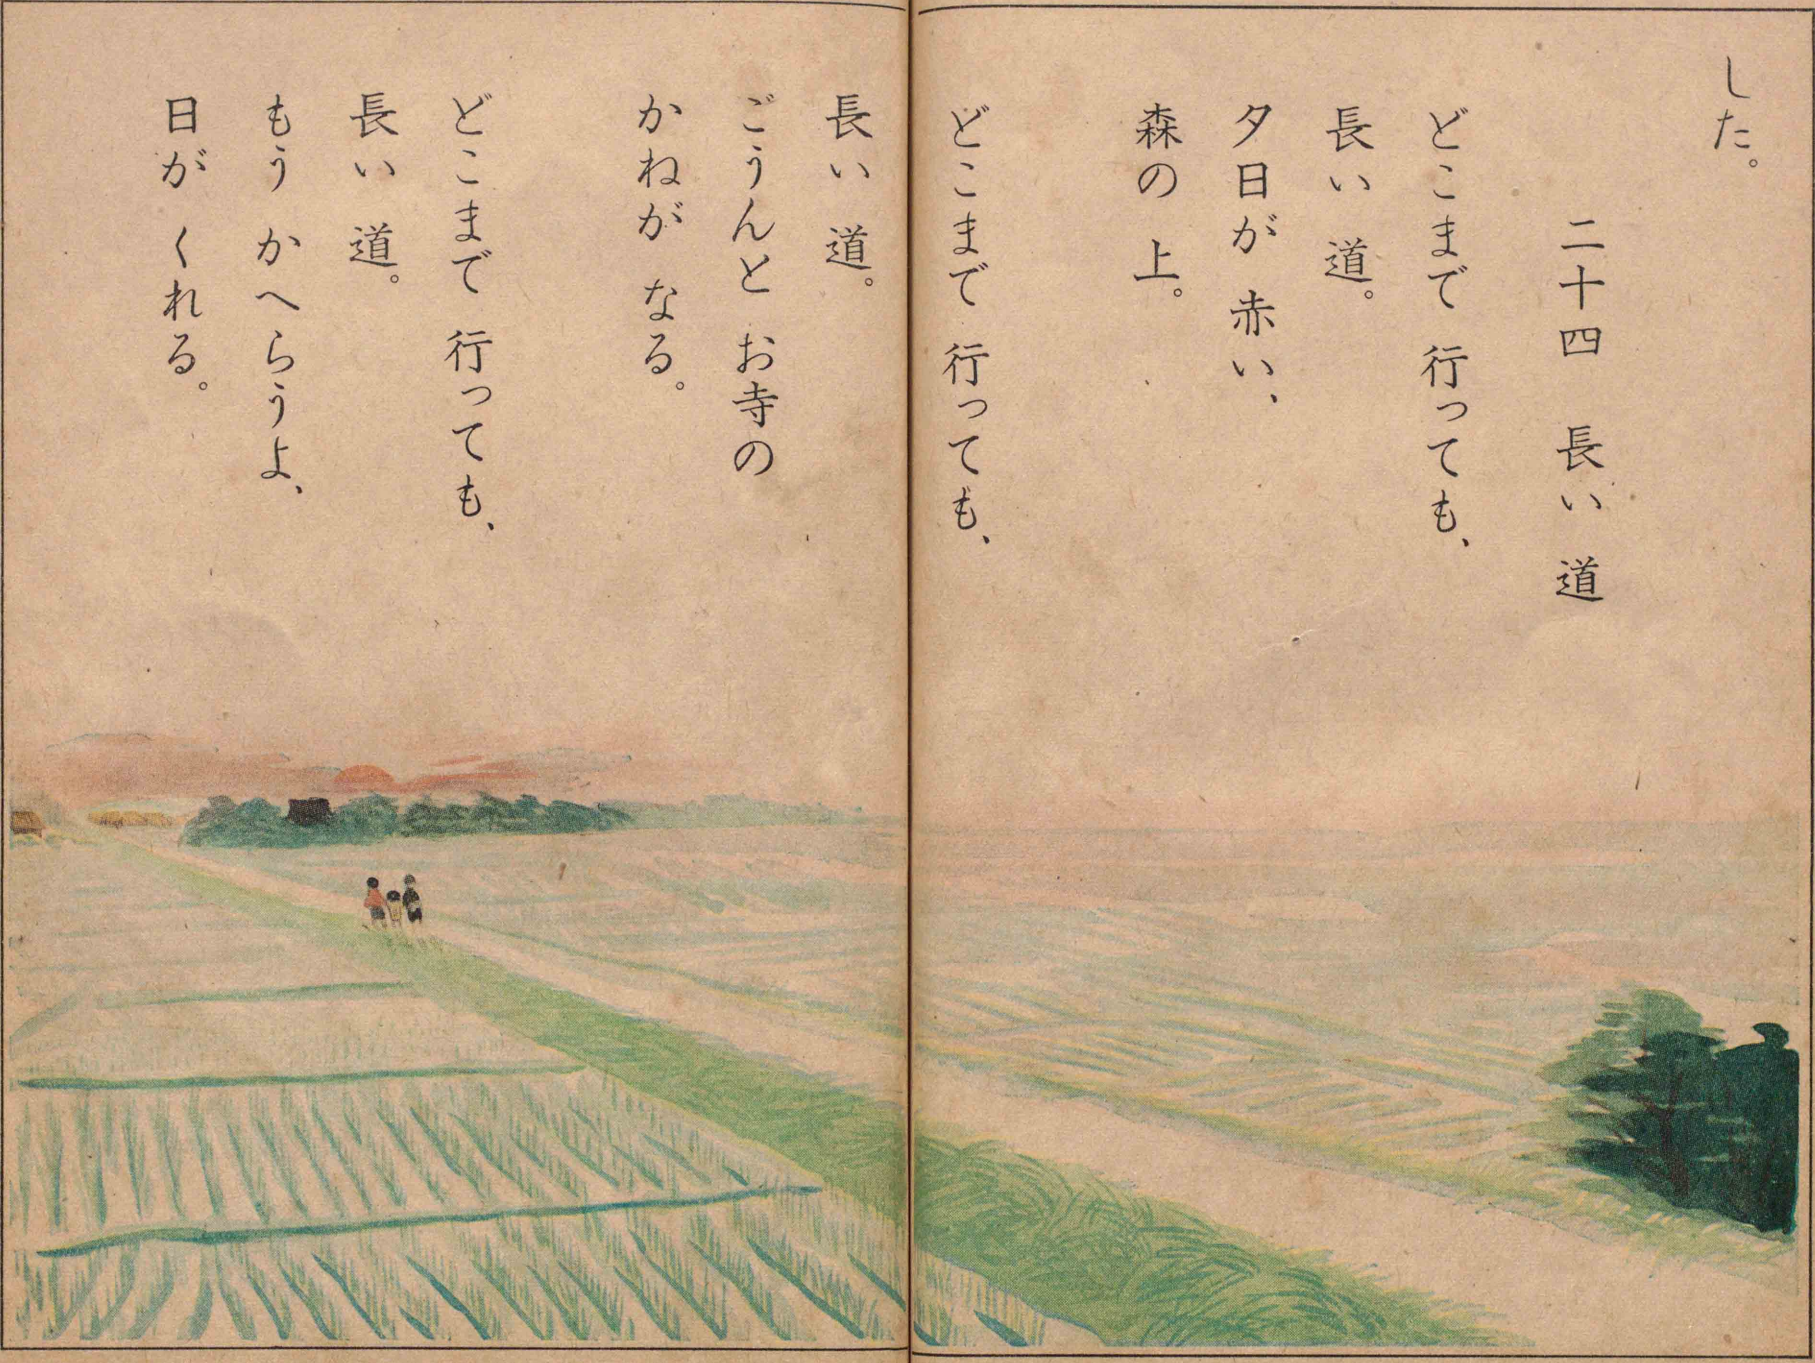 した。
二十四 長い 道
どこまで 行っても、
長い 道。
夕日が 赤い、
森の 上。
どこまで 行っても、
長い 道。
ごうんと お寺の
かねが なる。
どこまで 行っても、
長い 道。
もう かへらうよ、
日が くれる。